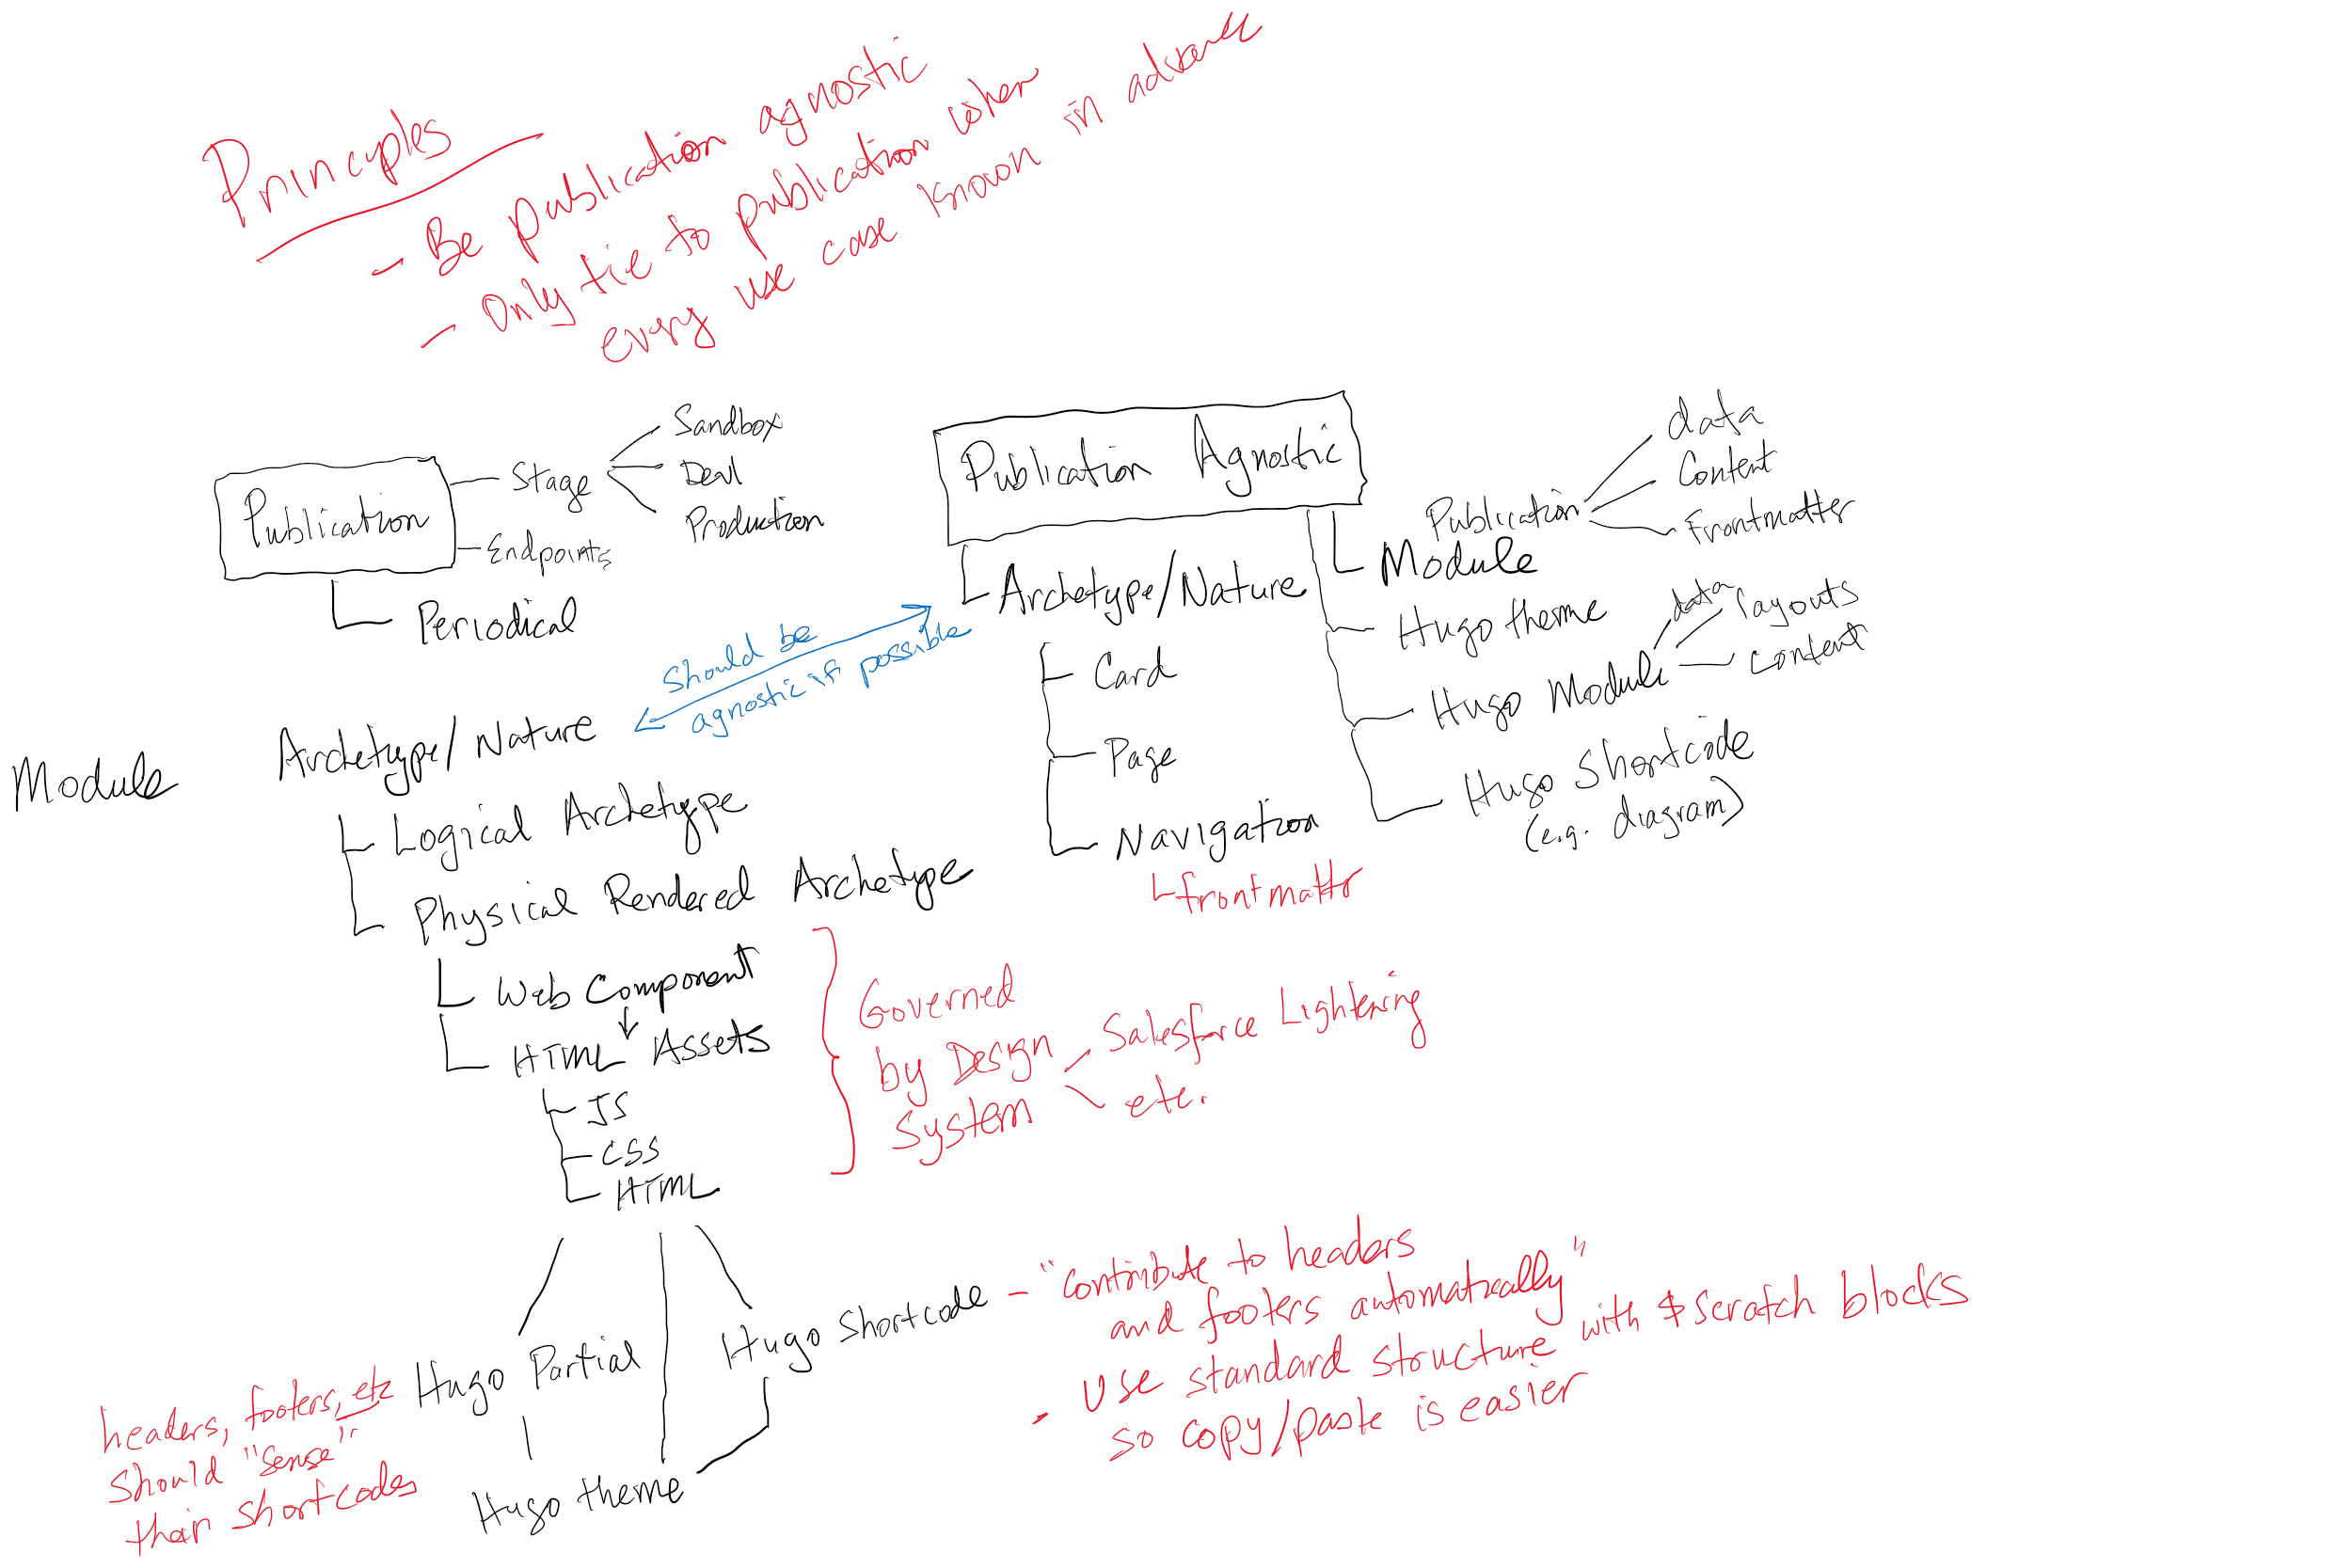 Principles
- Be publication agnostic
- Only tie to publication when
every use case known in advance
Publication
Stage
Sandbox
Devl
Production
Endpoints
Periodical
Publication Agnostic
Archetype/Nature
Card
Page
Navigation
frontmatter
Publication
data
Content
Frontmatter
Module
Hugo theme
Hugo Module
data
layouts
content
Hugo Shortcode
(e.g. diagram)
should be
agnostic if possible
Module
Archetype/Nature
Logical Archetype
Physical Rendered Archetype
Web Component
HTML Assets
JS
CSS
HTML
Governed
by Design
System
Salesforce Lightening
etc.
Hugo Partial
Hugo Shortcode
Hugo theme
headers, footers, etc
should "sense"
their shortcodes
- "Contribute to headers
and footers automatically"
- Use standard structure with $scratch blocks
so copy/paste is easier